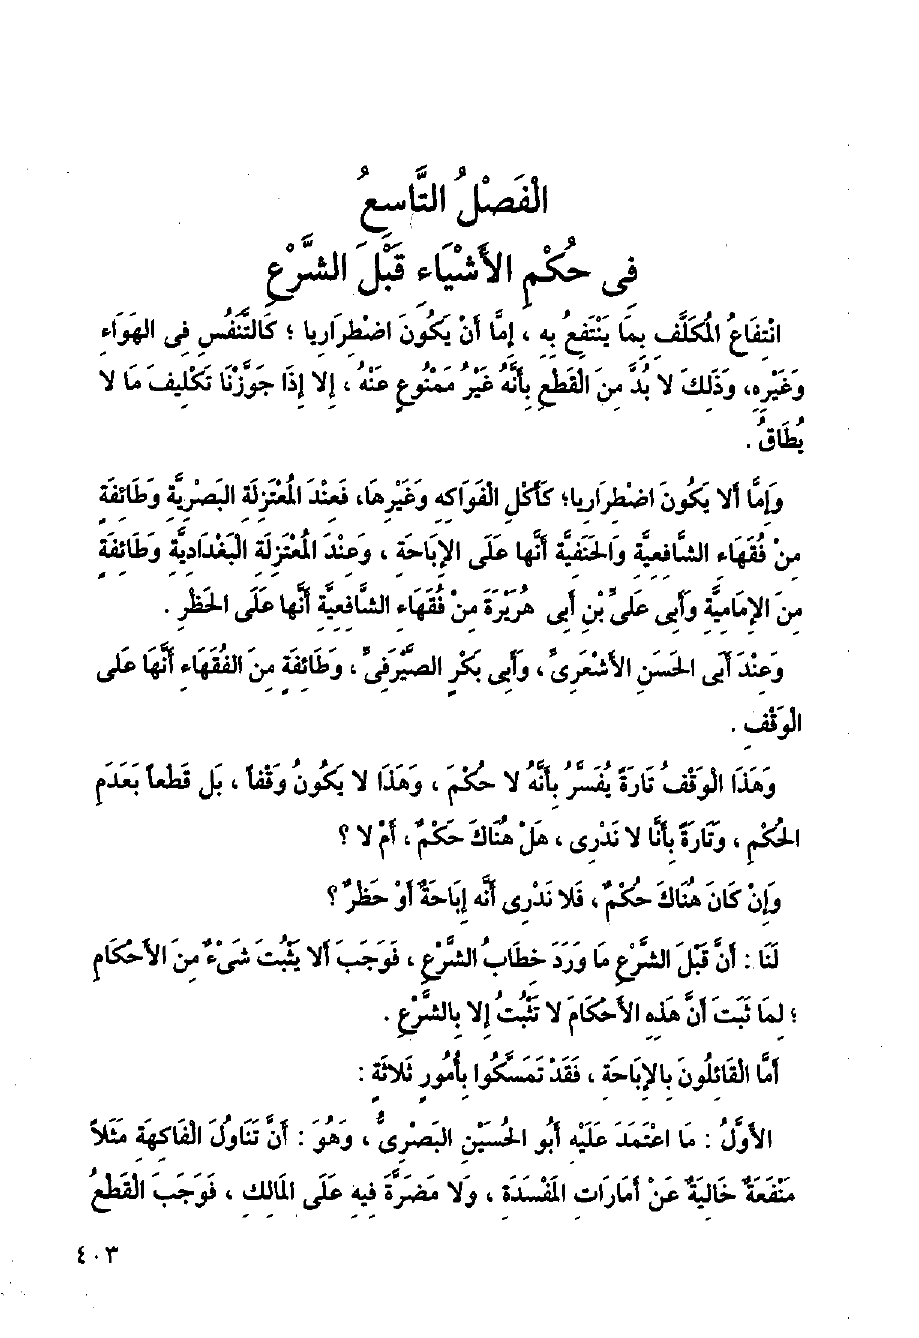 الْفَصْلُ التَّاسِعُ
فِى حُكْمِ الأَشْيَاءِ قَبْلَ الشَّرْعِ
انْتِفَاعُ الْمُكَلَّفِ بِمَا يَنْتَفِعُ بِهِ ، إِمَّا أَنْ يَكُونَ اضْطِرَارِيا ؛ كَالتَّنَفُّسِ فِى الهَوَاءِ
وَغَيْرِهِ، وَذَلِكَ لا بُدَّ مِنَ القَطْعِ بِأَنَّهُ غَيْرُ مَمْنُوعٍ عَنْهُ ، إِلا إِذَا جَوَّزْنَا تَكْلِيفَ مَا لا
يُطَاقُ .
وَإِمَّا أَلا يَكُونَ اضْطِرَارِيا؛ كَأَكْلِ الْفَوَاكِهِ وَغَيْرِهَا، فَعِنْدَ الْمُعْتَزِلَةِ البَصْرِيَّةِ وَطَائِفَةٍ
مِنْ فُقَهَاءِ الشَّافِعِيَّةِ وَالحَنَفِيَّةِ أَنَّها عَلَى الإِبَاحَةِ ، وَعِنْدَ الْمُعْتَزِلَةِ الْبَغْدَادِيَّةِ وَطَائِفَةٍ
مِنَ الإِمَامِيَّةِ وَأَبِى عَلِىِّ بْنِ أَبِى هُرَيْرَةَ مِنْ فُقَهَاءِ الشَّافِعِيَّةِ أَنَّها عَلَى الحَظْرِ .
وَعِنْدَ أَبِى الحَسَنِ الأَشْعَرِىِّ ، وَأَبِى بَكْرٍ الصَّيْرَفِىِّ ، وَطَائِفَةٍ مِنَ الفُقَهَاءِ أَنَّهَا عَلَى
الوَقْفِ .
وَهَذَا الْوَقْفُ تَارَةً يُفَسَّرُ بِأَنَّهُ لا حُكْمَ ، وَهَذَا لا يَكُونُ وَقْفاً ، بَل قَطْعاً بِعَدَمِ
الحُكْمِ ، وَتَارَةً بِأَنَّا لا نَدْرِى ، هَلْ هُنَاكَ حُكْمٌ ، أَمْ لا ؟
وَإِنْ كَانَ هُنَاكَ حُكْمٌ ، فَلا نَدْرِى أَنَّه إِبَاحَةٌ أَوْ حَظْرٌ ؟
لَنَا : أَنَّ قَبْلَ الشَّرْعِ مَا وَرَدَ خِطَابُ الشَّرْعِ ، فَوَجَبَ أَلا يَثْبُتَ شَىْءٌ مِنَ الأَحْكَامِ
؛ لِمَا ثَبَتَ أَنَّ هَذِهِ الأَحْكَامَ لا تَثْبُتُ إِلا بِالشَّرْعِ .
أَمَّا الْقَائِلُونَ بِالإِبَاحَةِ ، فَقَدْ تَمَسَّكُوا بِأُمُورٍ ثَلاثَةٍ :
الأَوَّلُ : مَا اعْتَمَدَ عَلَيْهِ أَبُو الحُسَيْنِ البَصْرِىُّ ، وَهُوَ : أَنَّ تَنَاوُلَ الْفَاكِهَةِ مَثَلاً
مَنْفَعَةٌ خَالِيَةٌ عَنْ أَمَارَاتِ الْمَفْسَدَةِ ، وَلا مَضَرَّةَ فِيهِ عَلَى الْمَالِكِ ، فَوَجَبَ الْقَطْعُ
٤٠٣